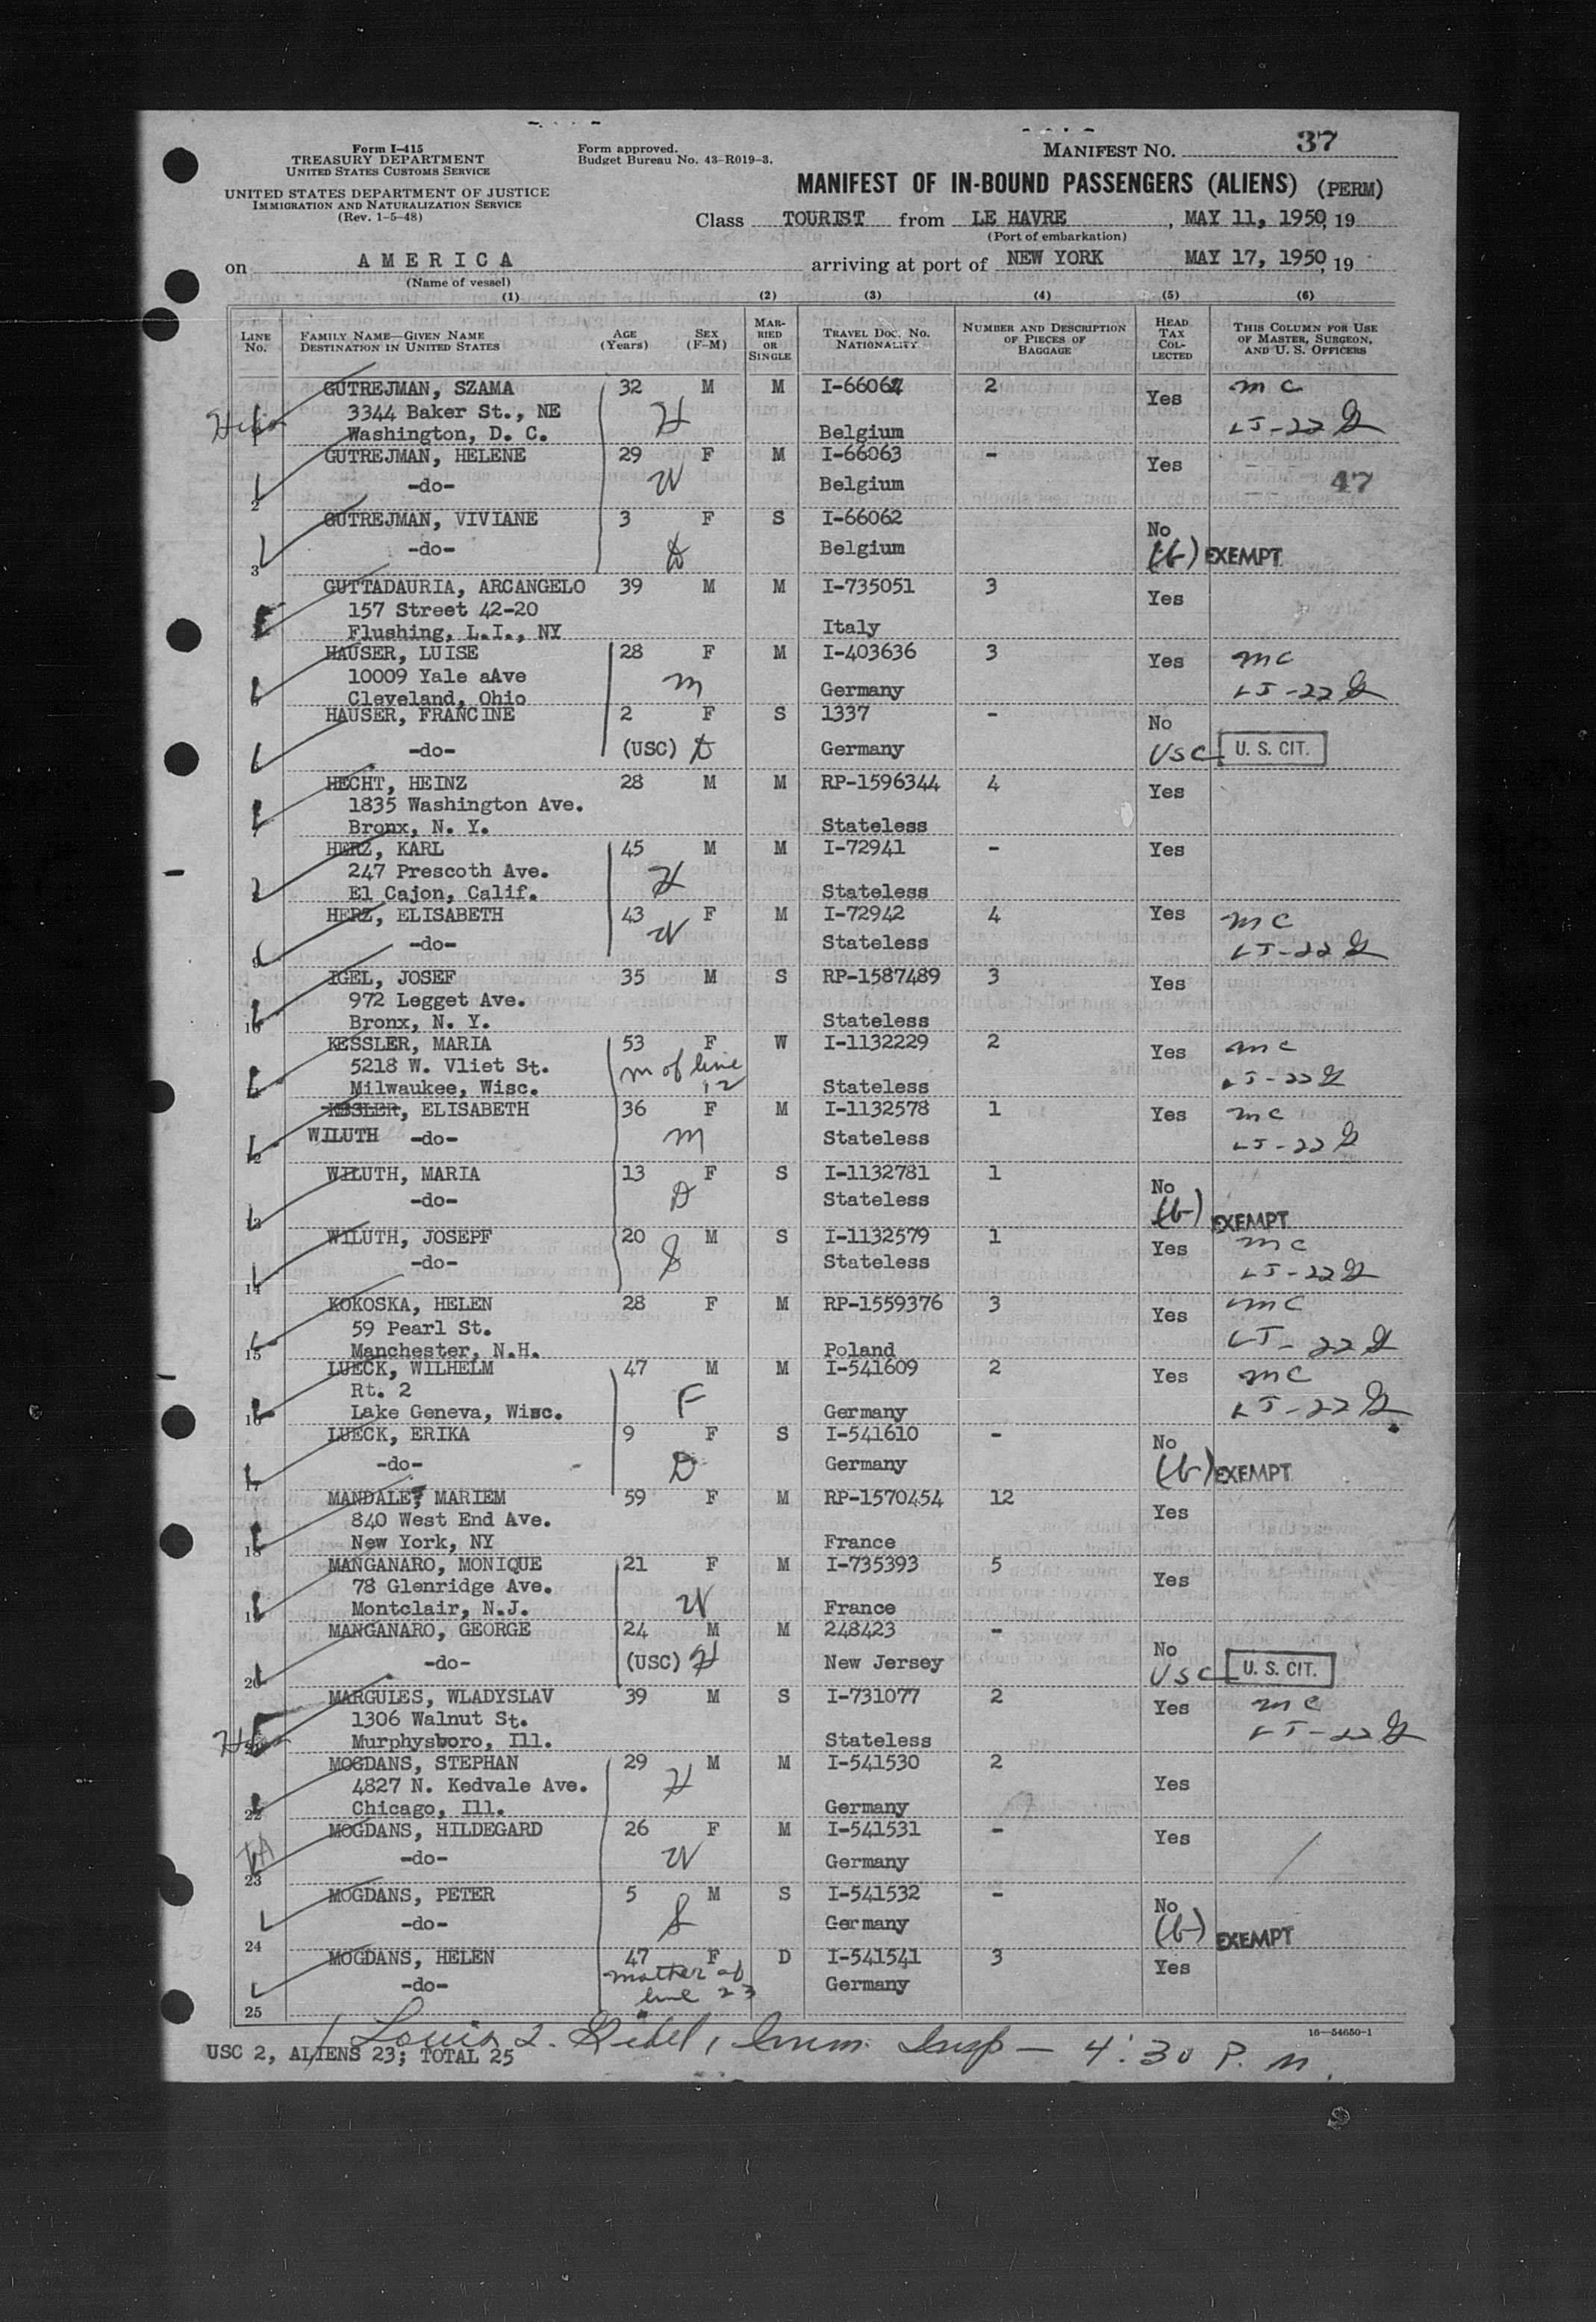 Form I-415
TREASURY DEPARTMENT
UNITED STATES CUSTOMS SERVICE
UNITED STATES DEPARTMENT OF JUSTICE
IMMIGRATION AND NATURALIZATION SERVICE
(Rev. 1-5-48)
Form approved.
Budget Bureau No. 43-R019-3.
MANIFEST NO. 37
MANIFEST OF IN-BOUND PASSENGERS (ALIENS) (PERM)
Class TOURIST from LE HAVRE, MAY 11, 1950, 19
(Port of embarkation)
on AMERICA arriving at port of NEW YORK MAY 17, 1950, 19
(Name of vessel)
(1) (2) (3) (4) (5) (6)
LINE No. FAMILY NAME—GIVEN NAME DESTINATION IN UNITED STATES AGE (Years) SEX (F-M) MARRIED OR SINGLE TRAVEL DOC. NO. NATIONALITY NUMBER AND DESCRIPTION OF PIECES OF BAGGAGE HEAD TAX COLLECTED THIS COLUMN FOR USE OF MASTER, SURGEON, AND U. S. OFFICERS
GUTREJMAN, SZAMA 32 M M I-66064 2 Yes mc
3344 Baker St., NE H
Washington, D. C. Belgium LJ-22
GUTREJMAN, HELENE 29 F M I-66063 - Yes
2 -do- W Belgium 47
GUTREJMAN, VIVIANE 3 F S I-66062 No
3 -do- D Belgium (b) EXEMPT
GUTTADAURIA, ARCANGELO 39 M M I-735051 3 Yes
157 Street 42-20
Flushing, L.I., NY Italy
HAUSER, LUISE 28 F M I-403636 3 Yes mc
10009 Yale aAve m
Cleveland, Ohio Germany LJ-22
HAUSER, FRANCINE 2 F S 1337 - No
-do- (USC) D Germany USC U. S. CIT.
HECHT, HEINZ 28 M M RP-1596344 4 Yes
1835 Washington Ave.
Bronx, N. Y. Stateless
HERZ, KARL 45 M M I-72941 - Yes
247 Prescoth Ave. H
El Cajon, Calif. Stateless
HERZ, ELISABETH 43 F M I-72942 4 Yes mc
9 -do- W Stateless LJ-22
IGEL, JOSEF 35 M S RP-1587489 3 Yes
972 Legget Ave.
10 Bronx, N. Y. Stateless
KESSLER, MARIA 53 F W I-1132229 2 Yes mc
5218 W. Vliet St. m of line 12
Milwaukee, Wisc. Stateless LJ-22
KESSLER, ELISABETH 36 F M I-1132578 1 Yes mc
12 WILUTH -do- m Stateless LJ-22
WILUTH, MARIA 13 F S I-1132781 1 No
13 -do- D Stateless (b) EXEMPT
WILUTH, JOSEPF 20 M S I-1132579 1 Yes mc
14 -do- S Stateless LJ-22
KOKOSKA, HELEN 28 F M RP-1559376 3 Yes mc
59 Pearl St.
15 Manchester, N.H. Poland LJ-22
LUECK, WILHELM 47 M M I-541609 2 Yes mc
Rt. 2 F
16 Lake Geneva, Wisc. Germany LJ-22
LUECK, ERIKA 9 F S I-541610 - No
17 -do- D Germany (b) EXEMPT
MANDALE, MARIEM 59 F M RP-1570454 12 Yes
840 West End Ave.
18 New York, NY France
MANGANARO, MONIQUE 21 F M I-735393 5 Yes
78 Glenridge Ave. W
19 Montclair, N.J. France
MANGANARO, GEORGE 24 M M 248423 - No
20 -do- (USC) H New Jersey USC U. S. CIT.
MARGULES, WLADYSLAV 39 M S I-731077 2 Yes mc
1306 Walnut St.
Murphysboro, Ill. Stateless LJ-22
MOGDANS, STEPHAN 29 M M I-541530 2 Yes
4827 N. Kedvale Ave. H
22 Chicago, Ill. Germany
MOGDANS, HILDEGARD 26 F M I-541531 - Yes
23 -do- W Germany
MOGDANS, PETER 5 M S I-541532 - No
24 -do- S Germany (b) EXEMPT
MOGDANS, HELEN 47 F D I-541541 3 Yes
25 -do- mother of line 23 Germany
16—54650-1
Louis Imm. Insp — 4:30 P. M.
USC 2, ALIENS 23; TOTAL 25